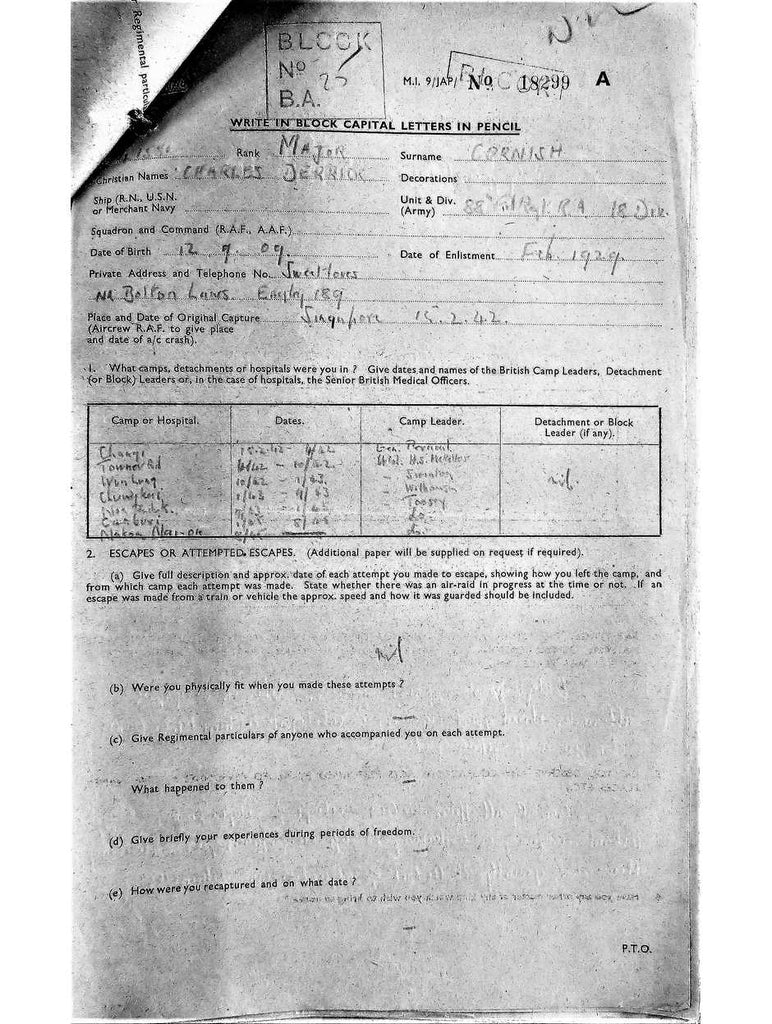 r Regimental particu
BLOCK
Nº 25
B.A.
M.I. 9/JAP/ No. 18299 A
WRITE IN BLOCK CAPITAL LETTERS IN PENCIL
Rank MAJOR Surname CORNISH
Christian Names CHARLES DERRICK Decorations
Ship (R.N., U.S.N. or Merchant Navy
Unit & Div. (Army) 88 Fd Regt R.A. 18 Div.
Squadron and Command (R.A.F., A.A.F.)
Date of Birth 12. 9. 09. Date of Enlistment Feb. 1929.
Private Address and Telephone No. Sweetloves
Nr Bolton Lancs. Eagley 189
Place and Date of Original Capture Singapore 15. 2. 42.
(Aircrew R.A.F. to give place
and date of a/c crash).
1. What camps, detachments or hospitals were you in ? Give dates and names of the British Camp Leaders, Detachment
(or Block) Leaders or, in the case of hospitals, the Senior British Medical Officers.
Camp or Hospital. Dates. Camp Leader. Detachment or Block Leader (if any).
Changi 15.2.42 - 4/42 Gen. Percival
Towner Rd 4/42 - 10/42 Lt Col. H.S.
10/42 - 1/43 - Swinton nil.
Chungkai 1/43 - 9/43 - Williamson
- Toosey
do.
do.
2. ESCAPES OR ATTEMPTED ESCAPES. (Additional paper will be supplied on request if required).
(a) Give full description and approx. date of each attempt you made to escape, showing how you left the camp, and
from which camp each attempt was made. State whether there was an air-raid in progress at the time or not. If an
escape was made from a train or vehicle the approx. speed and how it was guarded should be included.
nil
(b) Were you physically fit when you made these attempts ?
—
(c) Give Regimental particulars of anyone who accompanied you on each attempt.
What happened to them ?
—
(d) Give briefly your experiences during periods of freedom.
—
(e) How were you recaptured and on what date ?
—
P.T.O.